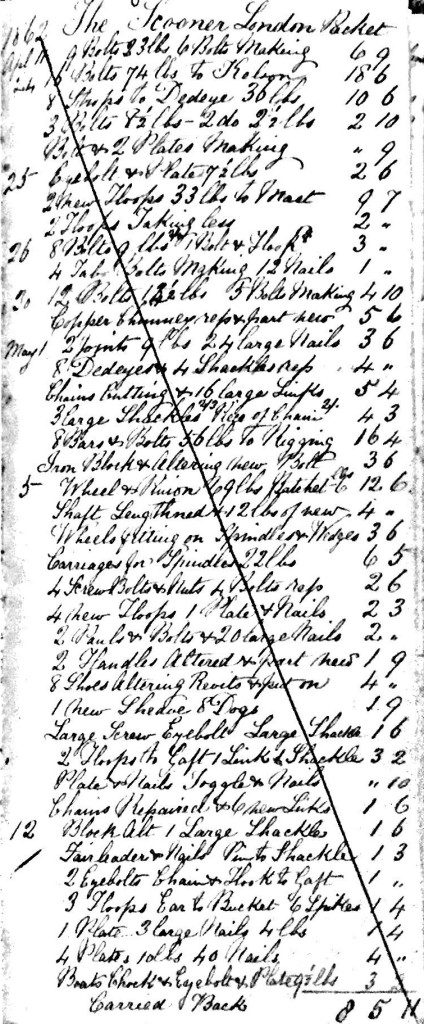 1862 The Scooner London Packet
Apl 9 Bolts 23 lbs 6 Bolts Making 6 9
Bolts 74 lbs to Kelson 18 6
8 Straps to Dedeye 36 lbs 10 6
3 Bolts 8½ lbs - 2 do 2½ lbs 2 10
Bolt & 2 Plates Making " 9
25 Eyebolt & Plate 7½ lbs 2 6
2 new Hoops 33 lbs to Mast 9 7
2 Hoops Taking less 2 "
26 8 Bolts 9 lbs 1 Bolt & Hook 3 "
4 Bolts Making 12 Nails 1 "
30 12 Bolts lbs 5 Bolts Making 4 10
Copper Chimney rep & part new 5 6
May 1 2 Joints 9 lbs 24 large Nails 3 6
8 Dedeyes & 4 Shackles rep 4 "
Chains Cutting & 16 large Links 5 4
3 large Shackles of Chain 4 3
8 Bars & Bolts 56 lbs to Rigging 16 4
Iron Block & Altering new Bolt 3 6
5 Wheel & Pinion 69 lbs Ratchet 12 6
Shaft Lengthned & 12 lbs of new 4 "
Wheels fitting on Spindles & Wedges 3 6
Carriages for Spindles 22 lbs 6 5
4 Screw Bolts & Nuts 4 Bolts rep 2 6
4 new Hoops 1 Plate & Nails 2 3
2 Pauls & Bolts & 20 large Nails 2 "
2 Handles Altered & part new 1 9
8 Shoes Altering Revits & put on 4 "
1 new Sheave & Dogs 1 9
Large Screw Eyebolt Large Shackle 1 6
2 Hoops to Gaft 1 Link & Shackle 3 2
Plate & Nails Toggle & Nails " 10
Chains Repaired & 6 new Links 1 6
12 Block Alt 1 Large Shackle 1 6
Fairleader & Nails Pin to Shackle 1 3
2 Eyebolts Chain & Hook to Gaft 1 "
3 Hoops Ear to Bucket 6 Spikes 1 4
1 Plate 3 large Nails 4 lbs 1 4
4 Plates 10 lbs 40 Nails 4 "
Boats Chock & Eyebolt & Plate 9½ lbs 3
Carried Back 8 5 11